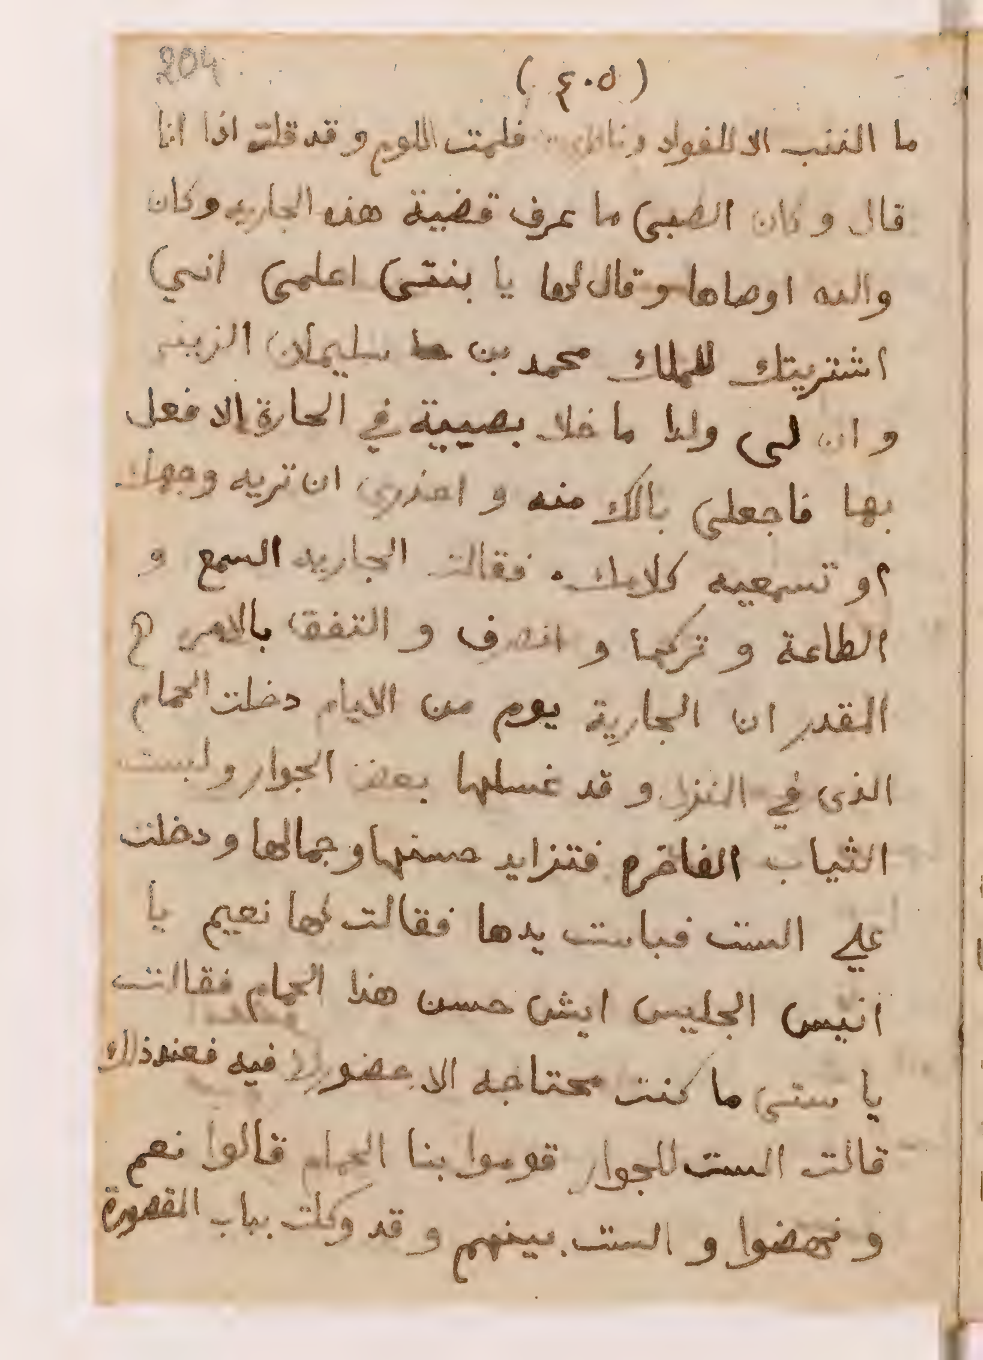 204
( ٤٠٥ )
ما الذنب الا للفواد فلمت اللوم و قد قلت اذا انا
قال و كان الصبى ما عرف قضية هذه الجاريه وكان
والده اوصاها وقال لها يا بنتى اعلمى انى
اشتريتك للملك محمد بن سليمان الزينى
و ان لى ولدا ما خلا بصبية في الحارة إلا فعل
بها فاجعلى بالك منه و احذرى ان تريه وجهك
او تسمعيه كلامك. فقالت الجاريه السمع و
الطاعة و تركها و انصرف و التفق بالامر
المقدر ان الجارية يوم من الايام دخلت الحمام
الذى في المنزل و قد غسلها بعض الجوار ولبست
الثياب الفاخره فتزايد حسنها وجمالها ودخلت
علي الست فباست يدها فقالت لها نعيم يا
انيس الجليس ايش حسن هذا الحمام فقالت
يا ستى ما كنت محتاجه الا حضورك فيه فعند ذلك
قالت الست للجوار قوموا بنا الحمام قالوا نعم
و نهضوا و الست بينهم و قد وكلت بباب المقصورة